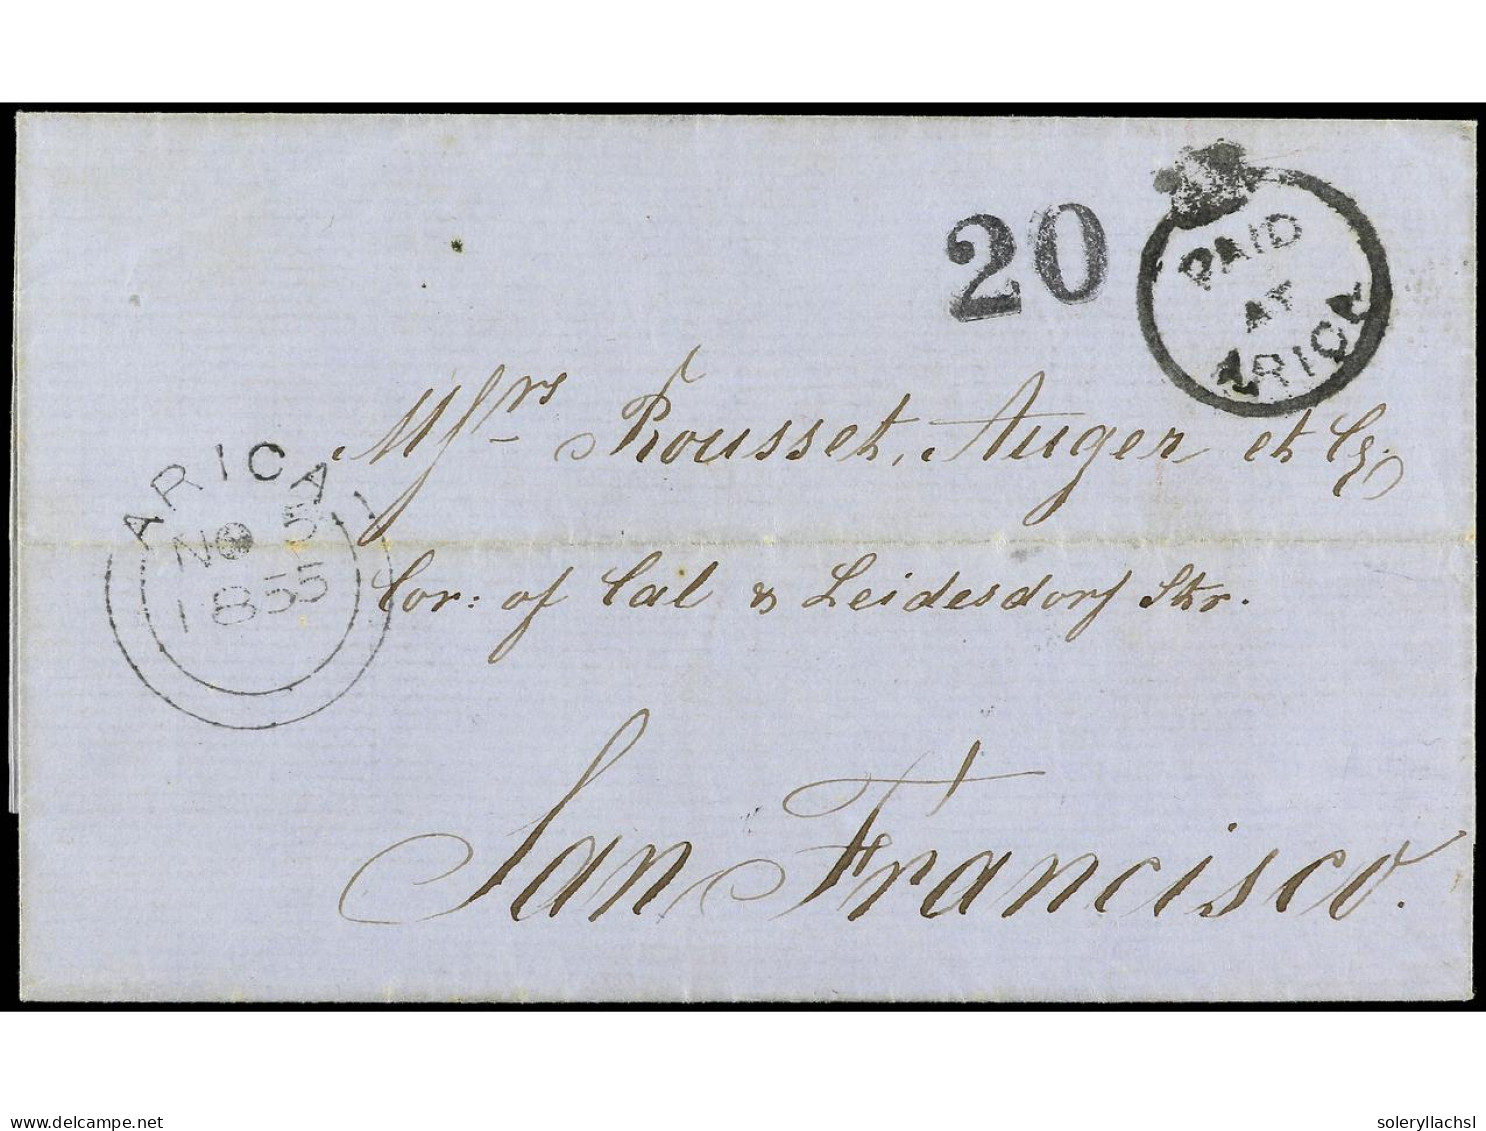 20
PAID
AT
ARICA
Mssrs Rousset, Auger et Cy.
ARICA
NO 5
1855
Cor: of Cal & Leidesdorf Str.
San Francisco.
delcampe.net
soleryllachsl